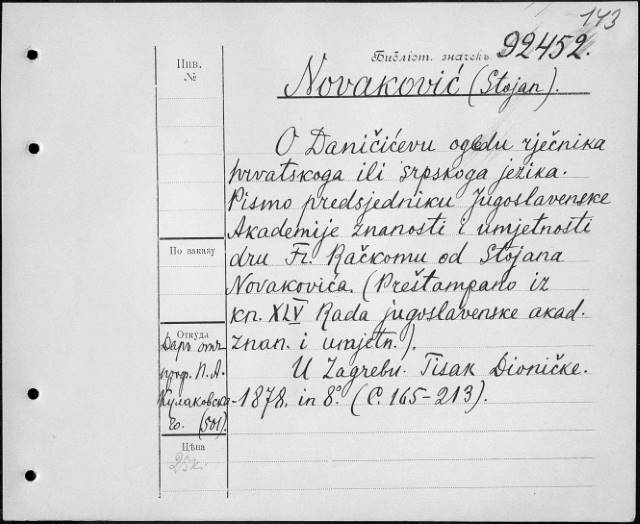 143
Инв.
№
Библіот. значекъ 92452.
Novaković (Stojan).
O Daničićevu ogledu rječnika
hrvatskoga ili srpskoga jezika.
Pismo predsjedniku Jugoslavenske
Akademije znanosti i umjetnosti
dru Fr. Račkomu od Stojana
Novakovića. (Preštampano iz
kn. XLV Rada jugoslavenske akad.
znan. i umjetn.).
U Zagrebu. Tisak Dioničke.
1878. in 8º. (С. 165-213).
По заказу
Откуда
Даръ отъ
проф. П. А.
Кулаковска-
го. (501).
Цѣна
25к.